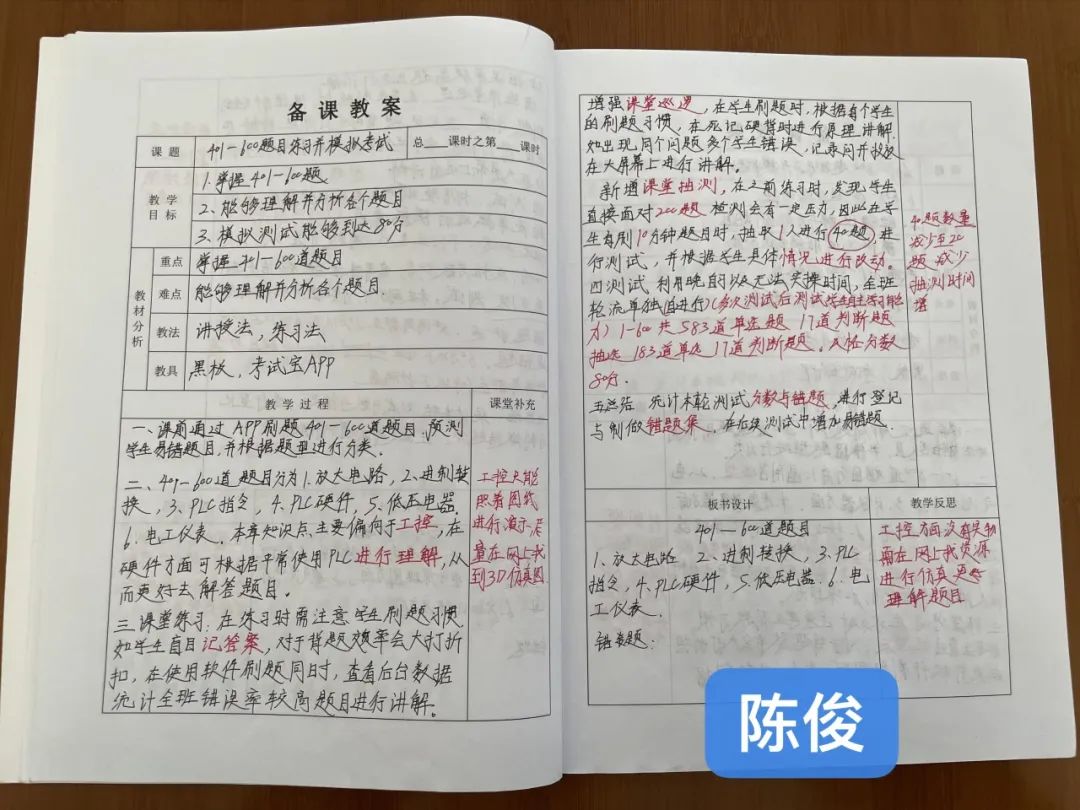 备课教案
课题 401-600题目练习并模拟考试 总 课时之第 课时
教学目标
1.掌握401-600题
2、能够理解并分析各个题目
3、模拟测试能够到达80分
教材分析
重点 掌握401-600道题目
难点 能够理解并分析各个题目.
教法 讲授法,练习法
教具 黑板,考试宝APP
教学过程
一、课前通过APP刷题401-600道题目.预测
学生易错题目,并根据题型进行分类.
二、401-600道题目分为1.放大电路、2、进制转
换、3、PLC指令、4.PLC硬件、5、低压电器.
6.电工仪表、本章知识点主要偏向于工控,在
硬件方面可根据平常使用PLC进行理解,从
而更好去解答题目.
三.课堂练习:在练习时需注意学生刷题习惯
如学生盲目记答案,对于背题效率会大打折
扣,在使用软件刷题同时,查看后台数据
统计全班错误率较高题目进行讲解.
课堂补充
工控只能
照着图纸
进行演示,尽
量在网上找
到3D仿真图
增强课堂巡逻,在学生刷题时,根据每个学生
的刷题习惯,在死记硬背时进行原理讲解
如出现同个问题多个学生错误,记录问并投放
在大屏幕上进行讲解.
新增课堂抽测,在之前练习时,发现学生
直接面对200题检测会有一定压力,因此在学
生每刷10分钟题目时,抽取1人进行40题,进
行测试,并根据学生具体情况进行改动。
四测试 利用晚自习以及无法实操时间,全班
轮流单独值进行)(多次测试后测试学生自主练习能
力)1-600共583道单选题 17道判断题
抽选183道单选17道判断题。及格分数
80分.
五总结 统计本轮测试分数与错题,进行登记
与制做错题集.在后续测试中增加易错题.
40题数量
减少至20
题 减少
抽测时间
板书设计
401-600道题目
1、放大电路 2、进制转换、3、PLC
指令、4、PLC硬件、5、低压电器.6、电
工仪表.
错题:
教学反思
工控方面没有实物
需在网上找资源
进行仿真更好
理解题目
陈俊